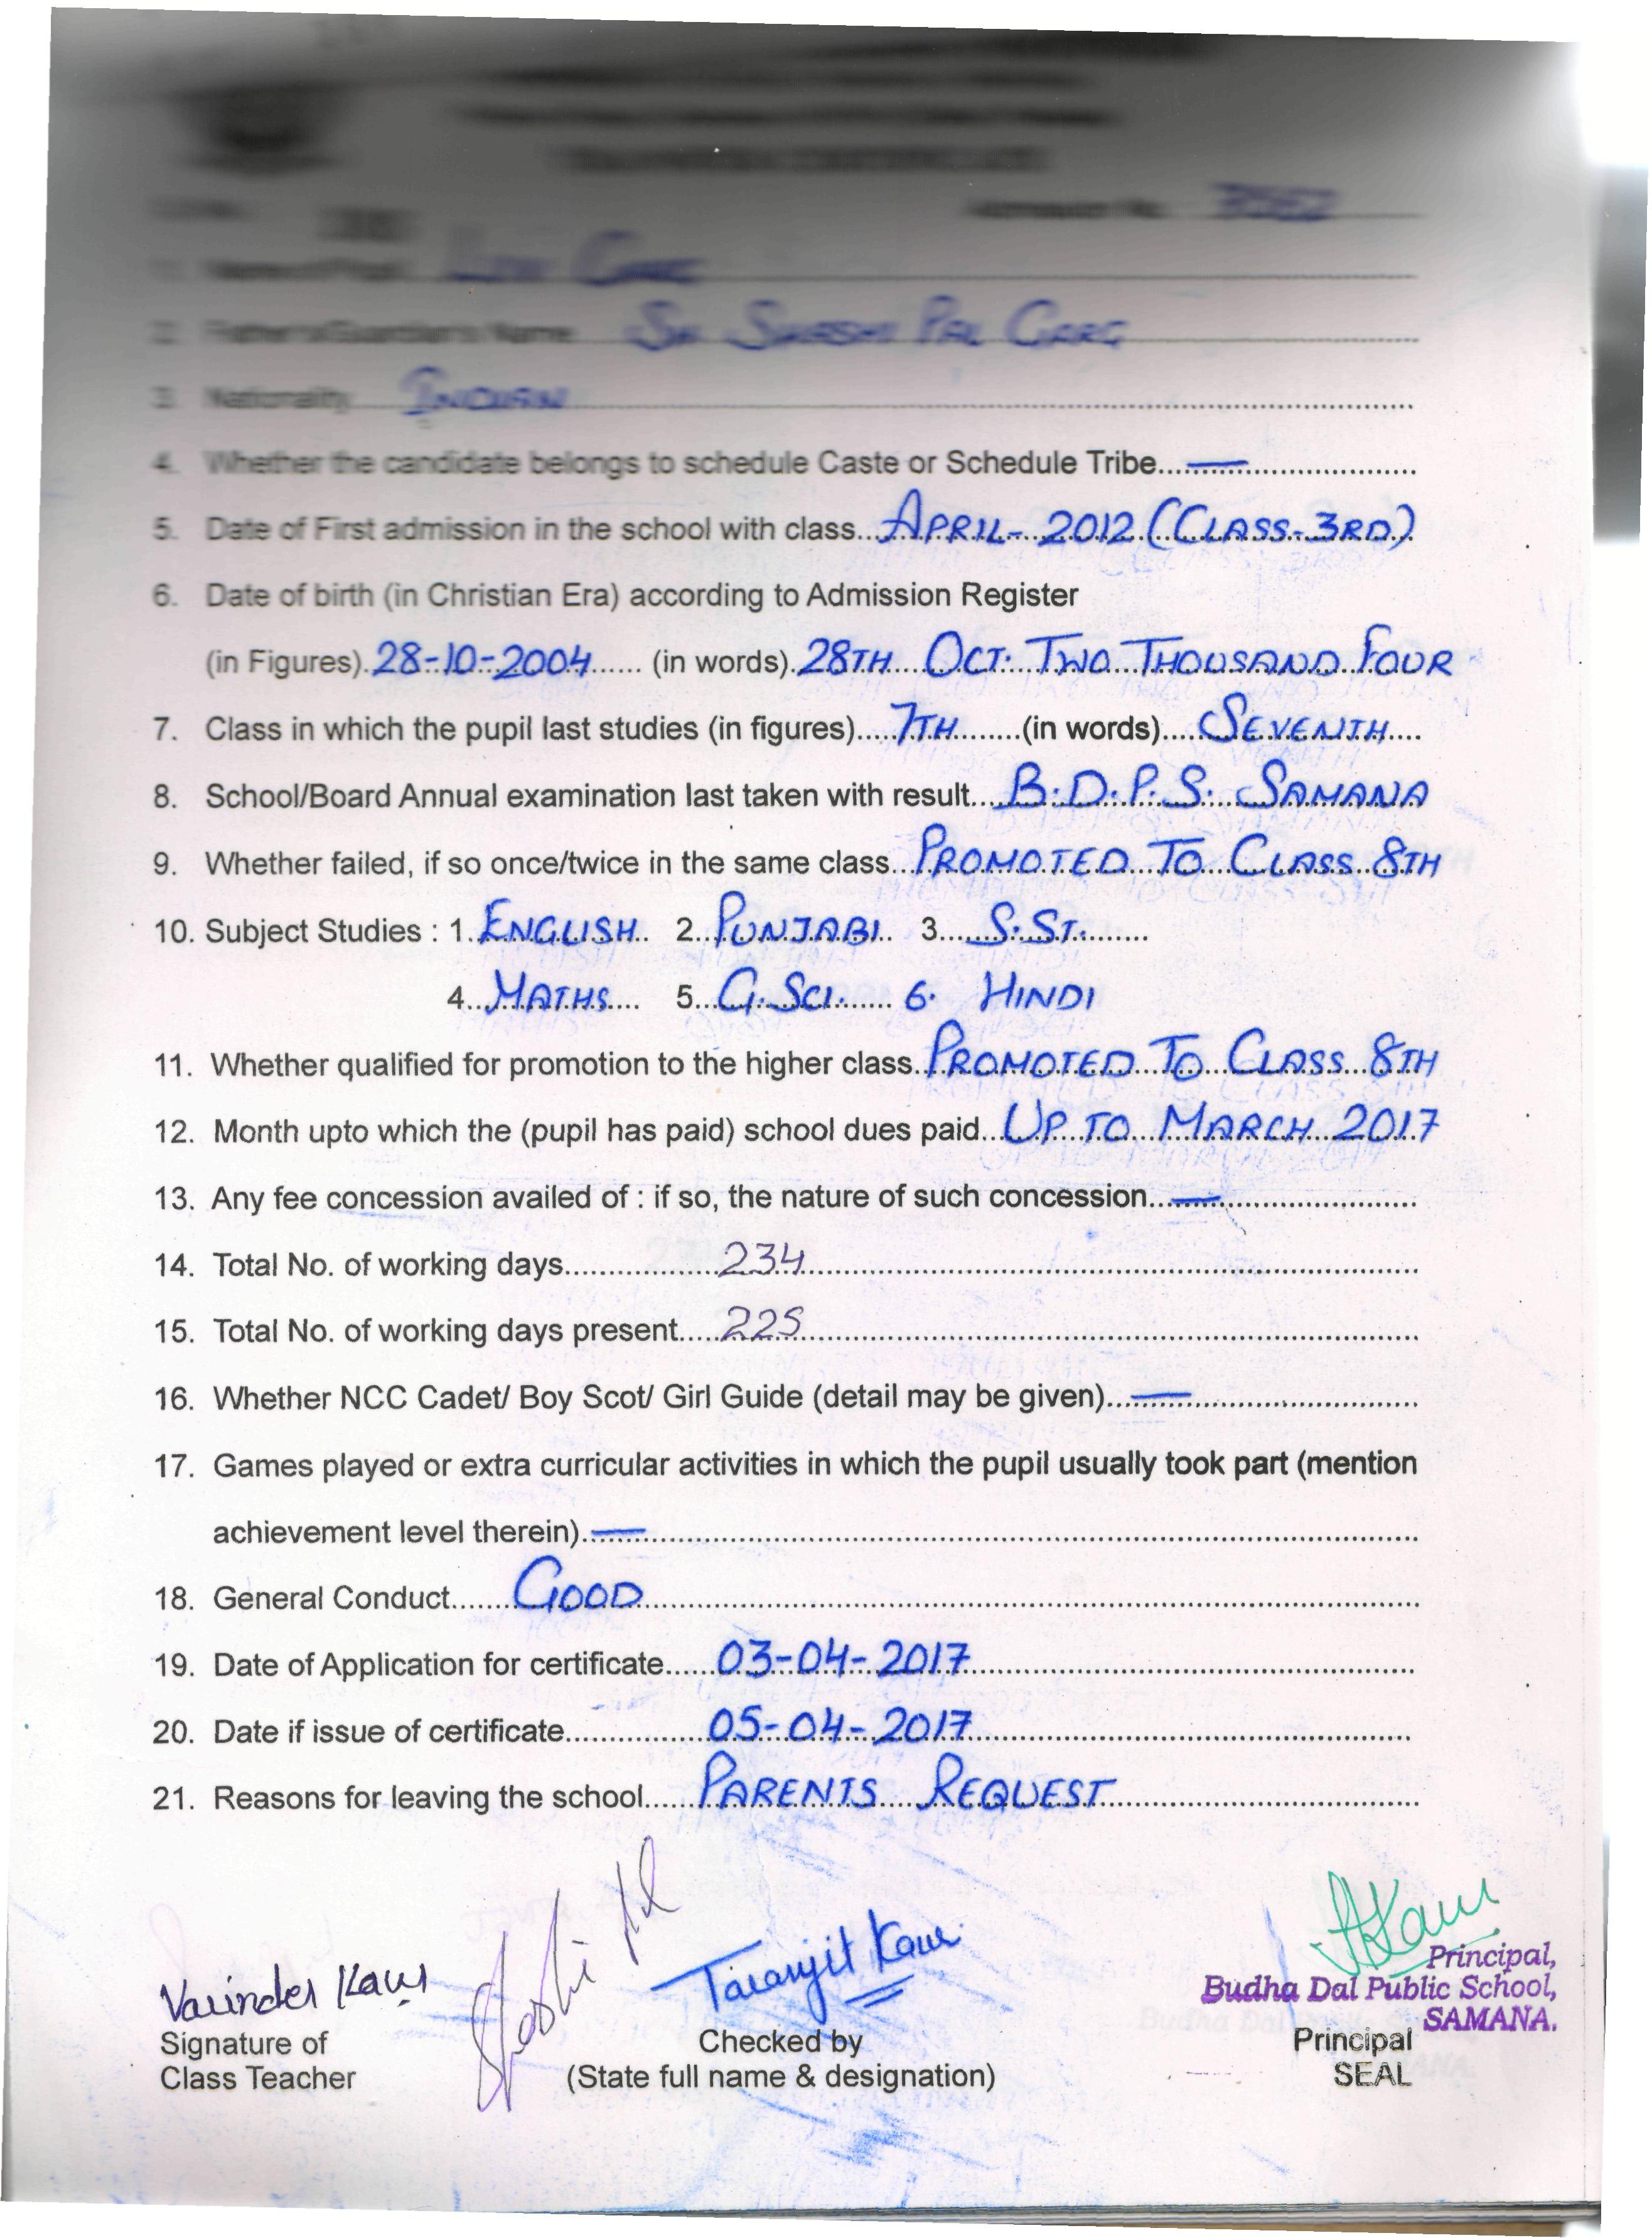 Admission No.
1. Name of Pupil Garg
2. Father's/Guardian's Name Sh Shashi Pal Garg
3. Nationality Indian
4. Whether the candidate belongs to schedule Caste or Schedule Tribe...—
5. Date of First admission in the school with class...April-2012 (Class-3rd)
6. Date of birth (in Christian Era) according to Admission Register
(in Figures).28-10-2004...... (in words).28th Oct. Two Thousand Four
7. Class in which the pupil last studies (in figures)....7th.......(in words)....Seventh....
8. School/Board Annual examination last taken with result...B.D.P.S. Samana
9. Whether failed, if so once/twice in the same class...Promoted To Class 8th
10. Subject Studies : 1. English.. 2..Punjabi.. 3.....S.St.......
4...Maths.... 5...G.Sci....... 6. Hindi
11. Whether qualified for promotion to the higher class..Promoted To Class 8th
12. Month upto which the (pupil has paid) school dues paid...Up to March 2017
13. Any fee concession availed of : if so, the nature of such concession...—
14. Total No. of working days..............234
15. Total No. of working days present.....225
16. Whether NCC Cadet/ Boy Scot/ Girl Guide (detail may be given)...—
17. Games played or extra curricular activities in which the pupil usually took part (mention
achievement level therein).—
18. General Conduct.......Good
19. Date of Application for certificate......03-04-2017
20. Date if issue of certificate..............05-04-2017
21. Reasons for leaving the school......Parents Request
Varinder Kaur
Shashi Pal
Taranjit Kaur
Principal,
Budha Dal Public School,
SAMANA.
Signature of
Class Teacher
Checked by
(State full name & designation)
Principal
SEAL